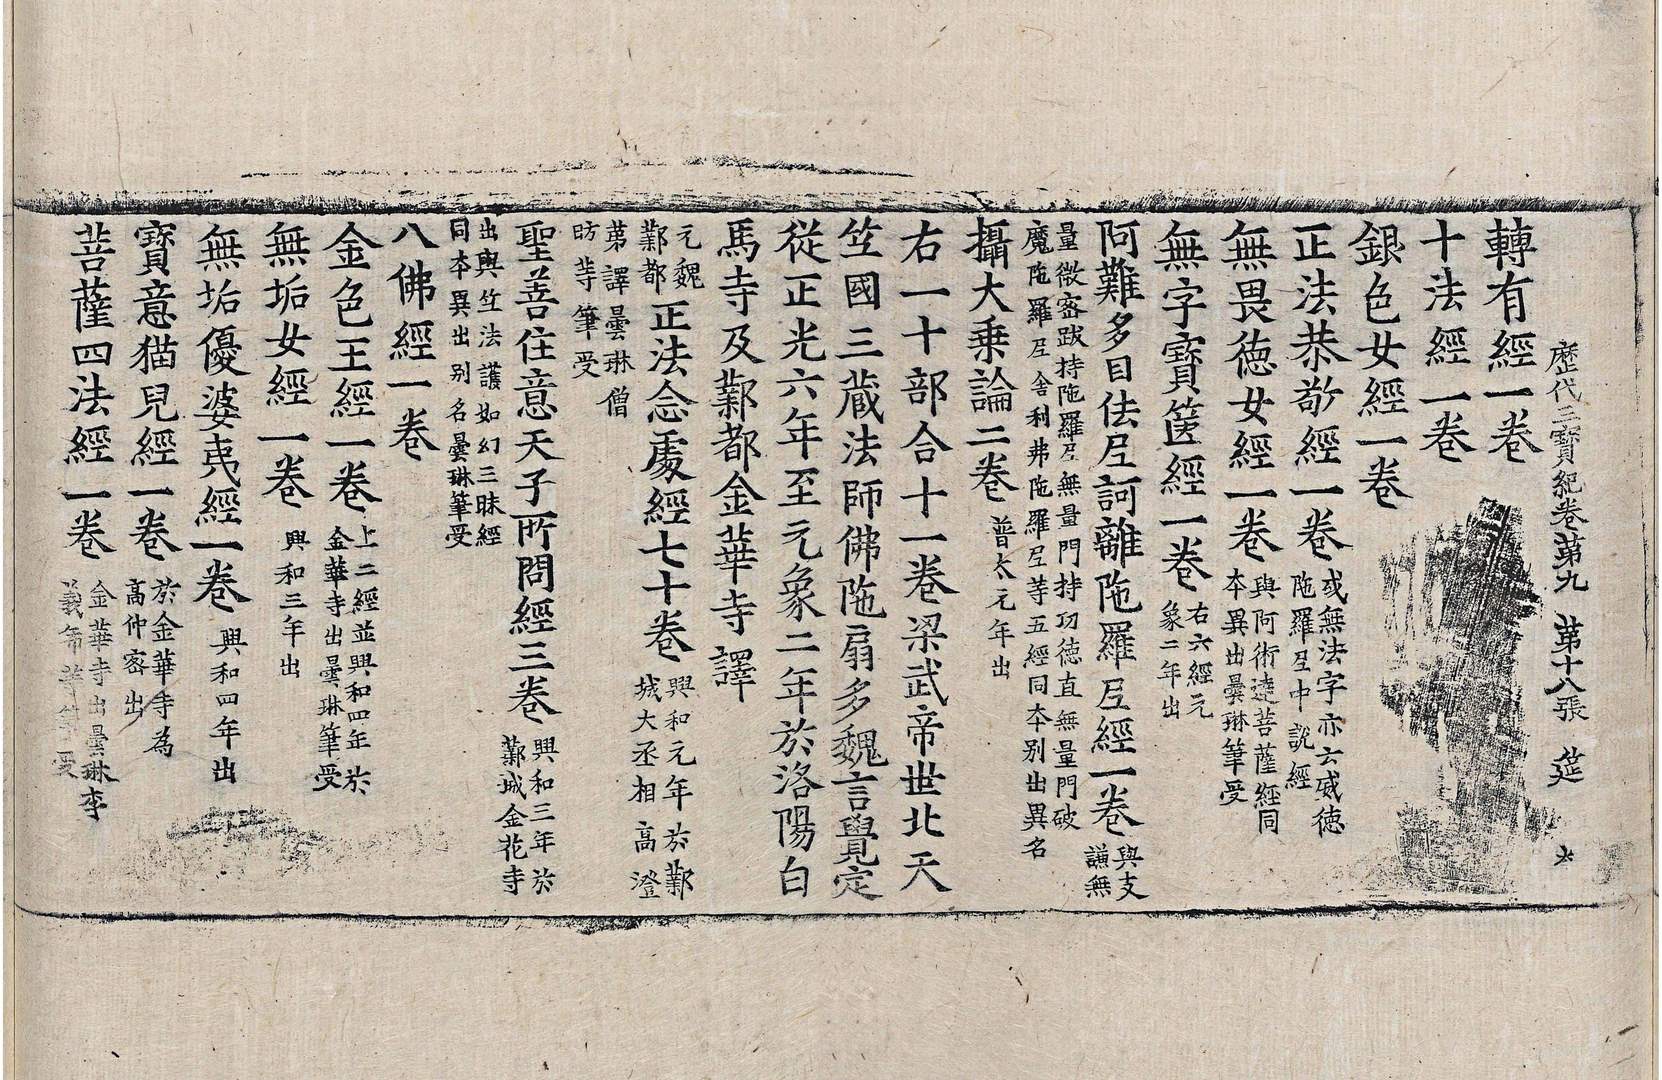 歷代三寶紀卷第九 第十八張 筵
轉有經一卷
十法經一卷
銀色女經一卷
正法恭敬經一卷 或無法字亦云威德
陁羅𡰱中說經
無畏德女經一卷 與阿術達菩薩經同
本異出曇琳筆受
無字寶篋經一卷 右六經元
象二年出
阿難多目佉𡰱訶離陁羅𡰱經一卷 與支
謙無
量微密跋持陁羅𡰱無量門持功德直無量門破
魔陁羅𡰱舍利弗陁羅𡰱等五經同本別出異名
攝大乗論二卷 普太元年出
右一十部合十一卷梁武帝世北天
竺國三藏法師佛陁扇多魏言覺定
從正光六年至元象二年於洛陽白
馬寺及鄴都金華寺譯
元魏
鄴都 正法念處經七十卷 興和元年於鄴
城大丞相高澄
第譯曇琳僧
昉等筆受
聖善住意天子所問經三卷 興和三年於
鄴城金花寺
出與竺法護如幻三昧經
同本異出別名曇琳筆受
八佛經一卷
金色王經一卷 上二經並興和四年於
金華寺出曇琳筆受
無垢女經一卷 興和三年出
無垢優婆夷經一卷 興和四年出
寶意猫兒經一卷 於金華寺為
高仲密出
菩薩四法經一卷 金華寺出曇琳李
義希等筆受